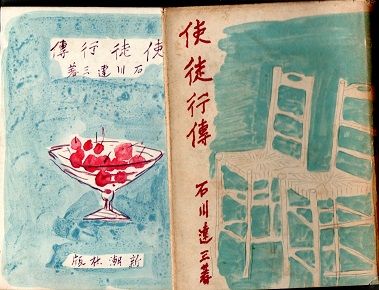 使徒行傳
石川達三著
使徒行傳
石川達三著
新潮社版